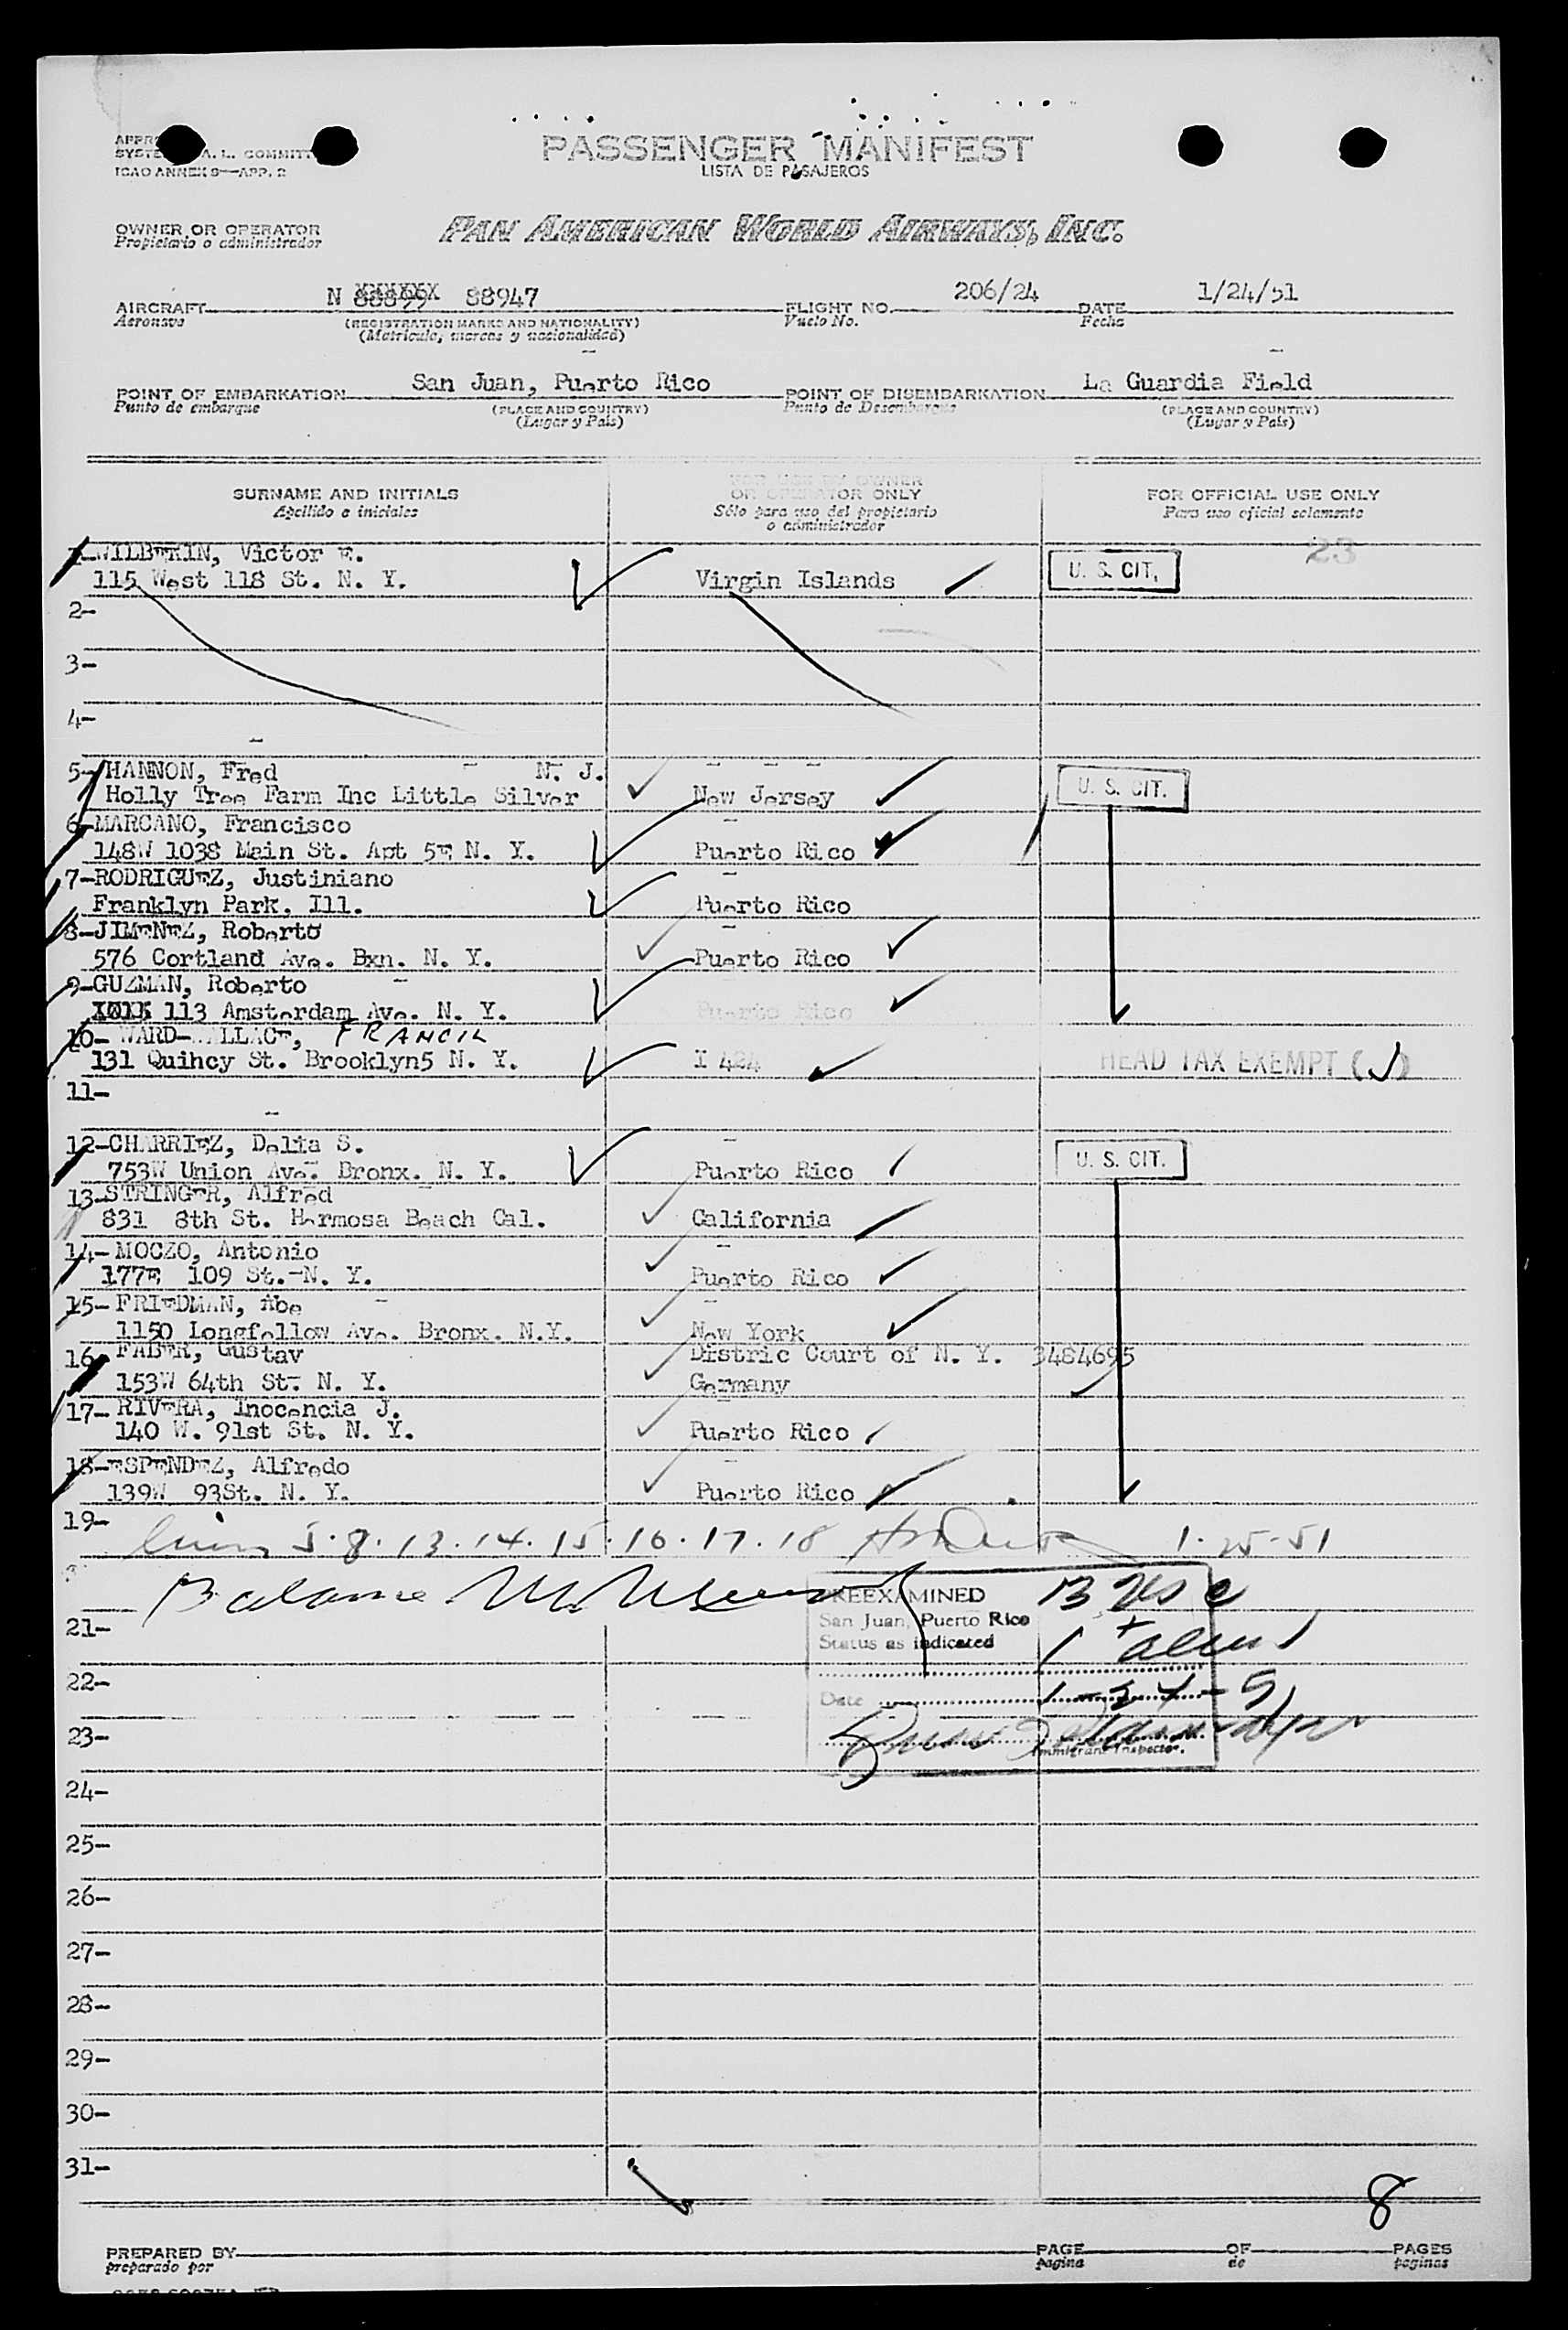 PASSENGER MANIFEST
LISTA DE PASAJEROS
ICAO ANNEX 9—APP. 2
OWNER OR OPERATOR
Propietario o administrador
PAN AMERICAN WORLD AIRWAYS, INC.
AIRCRAFT N 88899 88947 FLIGHT NO. 206/24 DATE 1/24/51
Aeronave (REGISTRATION MARKS AND NATIONALITY) Vuelo No. Fecha
(Matricula, marcas y nacionalidad)
POINT OF EMBARKATION San Juan, Puerto Rico POINT OF DISEMBARKATION La Guardia Field
Punto de embarque (PLACE AND COUNTRY) Punto de Desembarque (PLACE AND COUNTRY)
(Lugar y País) (Lugar y País)
SURNAME AND INITIALS FOR USE BY OWNER OR OPERATOR ONLY FOR OFFICIAL USE ONLY
Apellido e iniciales Sólo para uso del propietario o administrador Para uso oficial solamente
23
1-WILBERKIN, Victor E.
115 West 118 St. N. Y. Virgin Islands U. S. CIT.
2-
3-
4-
5-HANNON, Fred N. J.
Holly Tree Farm Inc Little Silver New Jersey U. S. CIT.
6-MARCANO, Francisco
148W 103S Main St. Apt 5E N. Y. Puerto Rico
7-RODRIGUEZ, Justiniano
Franklyn Park, Ill. Puerto Rico
8-JIMENEZ, Roberto
576 Cortland Ave. Bxn. N. Y. Puerto Rico
9-GUZMAN, Roberto
113 Amsterdam Ave. N. Y. Puerto Rico
10- WARD-WALLACE, FRANCIL
131 Quihcy St. Brooklyn5 N. Y. I 424 HEAD TAX EXEMPT ( )
11-
12-CHARRIEZ, Delia S.
753W Union Ave. Bronx. N. Y. Puerto Rico U. S. CIT.
13-STRINGER, Alfred
831 8th St. Hermosa Beach Cal. California
14- MOCZO, Antonio
177E 109 St.-N. Y. Puerto Rico
15- FRIEDMAN, Abe
1150 Longfellow Ave. Bronx. N.Y. New York
16- FABER, Gustav Distric Court of N. Y. 3484695
153W 64th St. N. Y. Germany
17- RIVERA, Inocencia J.
140 W. 91st St. N. Y. Puerto Rico
18-ESPENDEZ, Alfredo
139W 93St. N. Y. Puerto Rico
19-
5.8.13.14.15.16.17.18 1-25-51
Balance
PREEXAMINED 13 USC
San Juan, Puerto Rico
21-
Status as indicated 1 alien
22-
Date 1-24-51
23-
Immigrant Inspector.
24-
25-
26-
27-
28-
29-
30-
31-
8
PREPARED BY PAGE OF PAGES
preparado por pagina de paginas